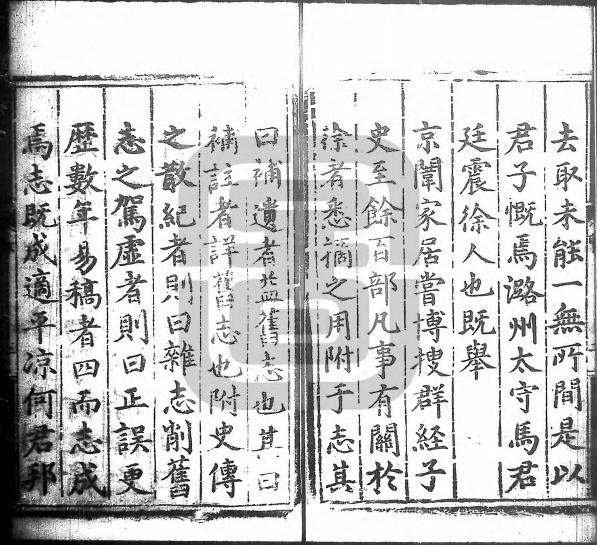 去取未能一無所間是以
君子慨焉潞州太守馬君
廷震徐人也既舉
京闈家居嘗博搜群經子
史至餘百部凡事有關於
徐者悉摘之用附于志其
曰補遺者益舊志也其曰
補註者詳舊志也附史傳
之散紀者則曰雜志削舊
志之駕虛者則曰正誤更
歷數年易稿者四而志成
焉志既成適平凉何君邦